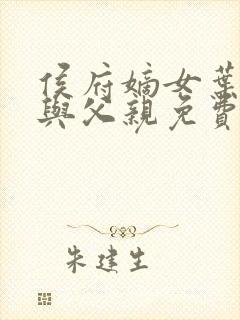 侯府嫡女葉
與父親免費
朱建生